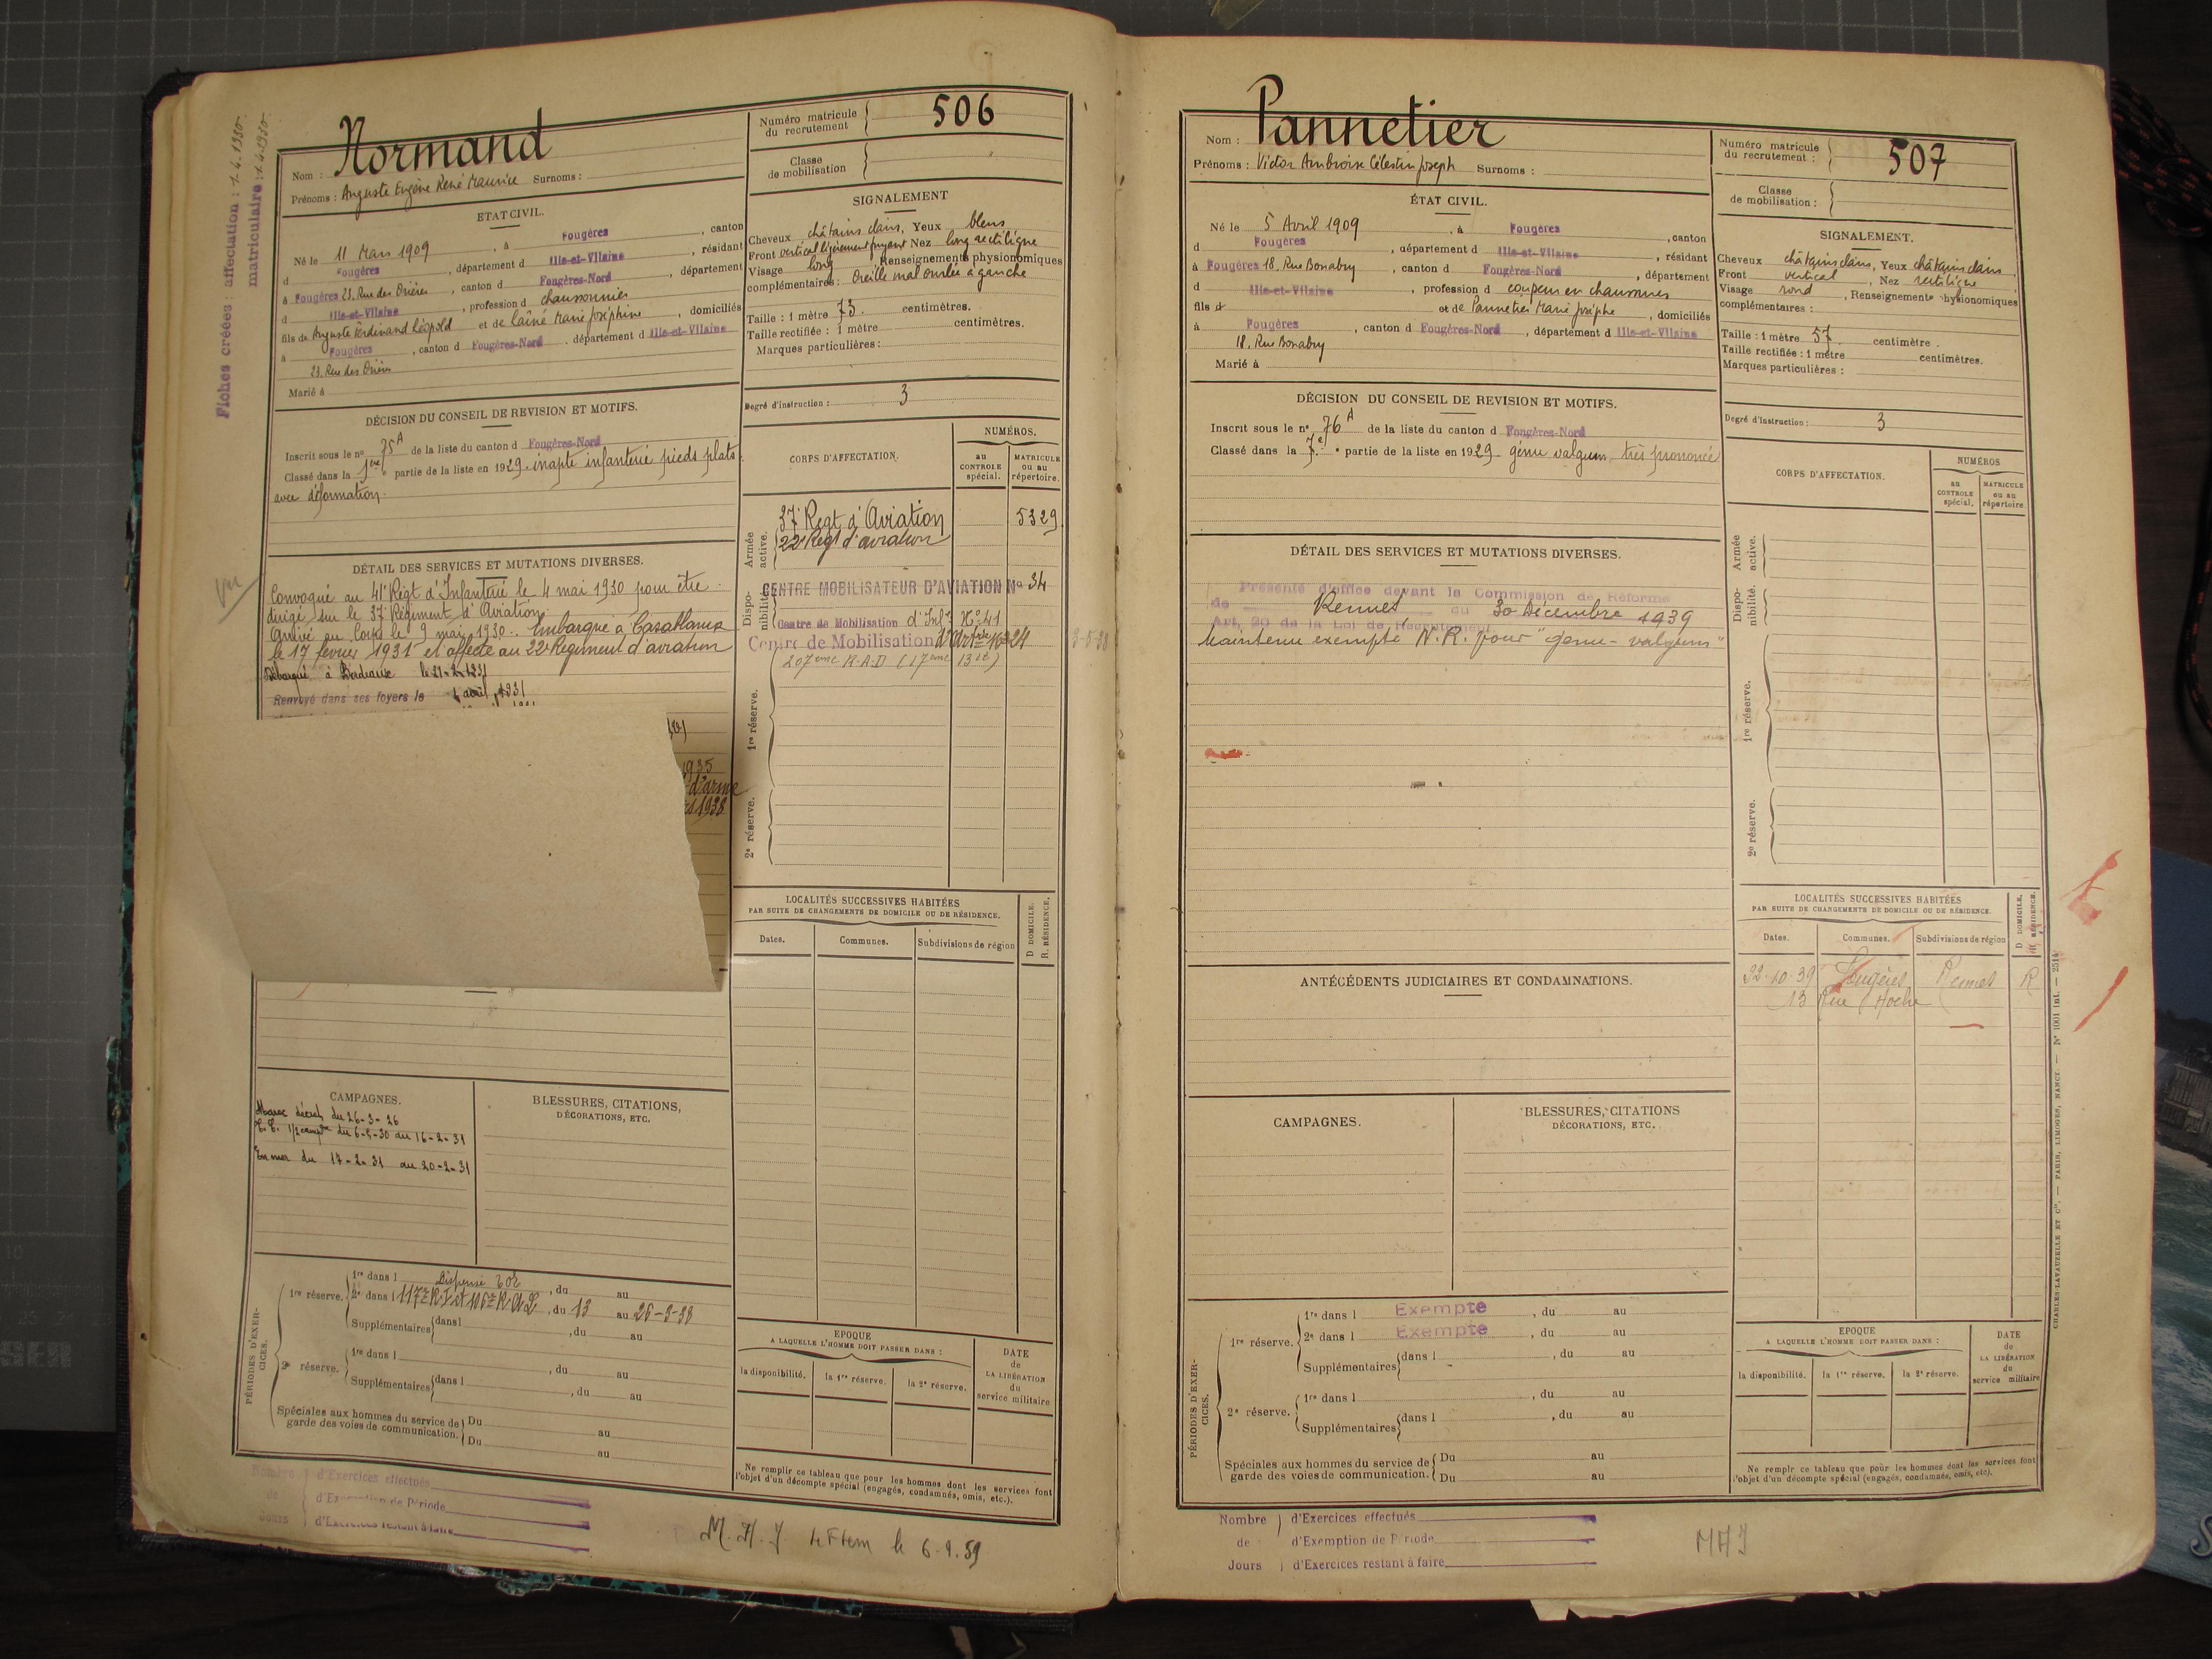 Fiches créées : affectation : 1-4-1930.
matriculaire : 1-4-1930.
Nom : Normand
Prénoms : Auguste Eugène René Maurice Surnoms :
Numéro matricule du recrutement 506
Classe de mobilisation
ETAT CIVIL.
Né le 11 Mars 1909, à Fougères, canton
d Fougères, département d Ille-et-Vilaine, résidant
à Fougères 23, Rue des Orières, canton d Fougères-Nord, département
d Ille-et-Vilaine, profession d chaussonnier
fils de Auguste Ferdinand Léopold et de Lainé Marie Joséphine, domiciliés
à Fougères, canton d Fougères-Nord, département d Ille-et-Vilaine
23, Rue des Orières
Marié à
SIGNALEMENT
Cheveux châtains clairs, Yeux bleus
Front vertical légèrement fuyant Nez long rectiligne
Visage long, Renseignements physionomiques
complémentaires : Oreille mal ourlée à gauche
Taille : 1 mètre 73. centimètres.
Taille rectifiée : 1 mètre centimètres.
Marques particulières :
Degré d'instruction : 3
DÉCISION DU CONSEIL DE REVISION ET MOTIFS.
Inscrit sous le no 75A de la liste du canton d Fougères-Nord
Classé dans la 1ère partie de la liste en 1929. inapte infanterie pieds plats
avec déformation.
DÉTAIL DES SERVICES ET MUTATIONS DIVERSES.
vu
Convoqué au 41e Régt d'Infanterie le 4 mai 1930 pour être
dirigé sur le 37e Régiment d'Aviation.
Arrivé au Corps le 9 mai 1930. Embarqué à Casablanca
le 17 février 1931 et affecté au 22e Régiment d'aviation
Débarqué à Bordeaux le 21-2-1931
Renvoyé dans ses foyers le avril 1931
1935
d'arme
1938
CORPS D'AFFECTATION.
NUMÉROS.
au CONTROLE spécial.
MATRICULE ou au répertoire.
Armée active.
37e Régt d'Aviation 5329
22e Régt d'aviation
Disponibilité.
CENTRE MOBILISATEUR D'AVIATION No 34
Centre de Mobilisation d'Inf. No 41
Centre de Mobilisation d'Artrie No 24 3-5-38
207eme R.A.D (17eme Bie)
1re réserve.
2e réserve.
LOCALITÉS SUCCESSIVES HABITÉES
PAR SUITE DE CHANGEMENTS DE DOMICILE OU DE RÉSIDENCE.
D DOMICILE.
R. RÉSIDENCE.
Dates. Communes. Subdivisions de région
CAMPAGNES.
Maroc décret du 26-3-26
du 6-5-30 au 16-2-31
En mer du 17-2-31 au 20-2-31
BLESSURES, CITATIONS,
DÉCORATIONS, ETC.
PÉRIODES D'EXERCICES.
1re réserve. 1re dans l Dispensé, du au
2e dans l 117e R.I et 106e R.A.L., du 13 au 26-3-38
Supplémentaires dans l, du au
2e réserve. 1re dans l, du au
Supplémentaires dans l, du au
Spéciales aux hommes du service de garde des voies de communication. Du au
Du au
EPOQUE
A LAQUELLE L'HOMME DOIT PASSER DANS :
la disponibilité. la 1re réserve. la 2e réserve.
DATE de LA LIBÉRATION du service militaire
Ne remplir ce tableau que pour les hommes dont les services font
l'objet d'un décompte spécial (engagés, condamnés, omis, etc.).
Nombre de Jours
d'Exercices effectués
d'Exemption de Période
d'Exercices restant à faire
M. A. J. le 6-9.39
Nom : Pannetier
Prénoms : Victor Ambroise Célestin Joseph Surnoms :
Numéro matricule du recrutement : 507
Classe de mobilisation :
ÉTAT CIVIL.
Né le 5 Avril 1909, à Fougères, canton
d Fougères, département d Ille-et-Vilaine, résidant
à Fougères 18, Rue Bonabry, canton d Fougères-Nord, département
d Ille-et-Vilaine, profession d coupeur en chaussures
fils d et de Pannetier Marie Josèphe, domiciliés
à Fougères, canton d Fougères-Nord, département d Ille-et-Vilaine
18, Rue Bonabry
Marié à
SIGNALEMENT.
Cheveux châtains clairs, Yeux châtains clairs
Front vertical, Nez rectiligne
Visage rond, Renseignements physionomiques
complémentaires :
Taille : 1 mètre 57. centimètre .
Taille rectifiée : 1 mètre centimètres.
Marques particulières :
Degré d'instruction : 3
DÉCISION DU CONSEIL DE REVISION ET MOTIFS.
Inscrit sous le no 76A de la liste du canton d Fougères-Nord
Classé dans la 7e partie de la liste en 1929 génu valgum très prononcé
DÉTAIL DES SERVICES ET MUTATIONS DIVERSES.
Présenté d'office devant la Commission de Réforme
de Rennes du 30 Décembre 1939
Art. 20 de la Loi de Recrutement
Maintenu exempté N.R. pour "génu-valgum"
CORPS D'AFFECTATION.
NUMÉROS
au CONTROLE spécial.
MATRICULE ou au répertoire
Armée active.
Disponibilité.
1re réserve.
2e réserve.
ANTÉCÉDENTS JUDICIAIRES ET CONDAMNATIONS.
LOCALITÉS SUCCESSIVES HABITÉES
PAR SUITE DE CHANGEMENTS DE DOMICILE OU DE RÉSIDENCE.
D DOMICILE,
R. RÉSIDENCE.
Dates. Communes. Subdivisions de région
22-10-39 Fougères Rennes R
13 Rue Hoche
CAMPAGNES.
BLESSURES, CITATIONS
DÉCORATIONS, ETC.
PÉRIODES D'EXERCICES.
1re réserve. 1re dans l Exempté, du au
2e dans l Exempté, du au
Supplémentaires dans l, du au
2e réserve. 1re dans l, du au
Supplémentaires dans l, du au
Spéciales aux hommes du service de garde des voies de communication. Du au
Du au
EPOQUE
A LAQUELLE L'HOMME DOIT PASSER DANS :
la disponibilité. la 1re réserve. la 2e réserve.
DATE de LA LIBÉRATION du service militaire
Ne remplir ce tableau que pour les hommes dont les services font
l'objet d'un décompte spécial (engagés, condamnés, omis, etc).
CHARLES-LAVAUZELLE ET Cie. — PARIS, LIMOGES, NANCY. — No 1001 Int. — 2514
Nombre de Jours
d'Exercices effectués
d'Exemption de Période
d'Exercices restant à faire
MAJ